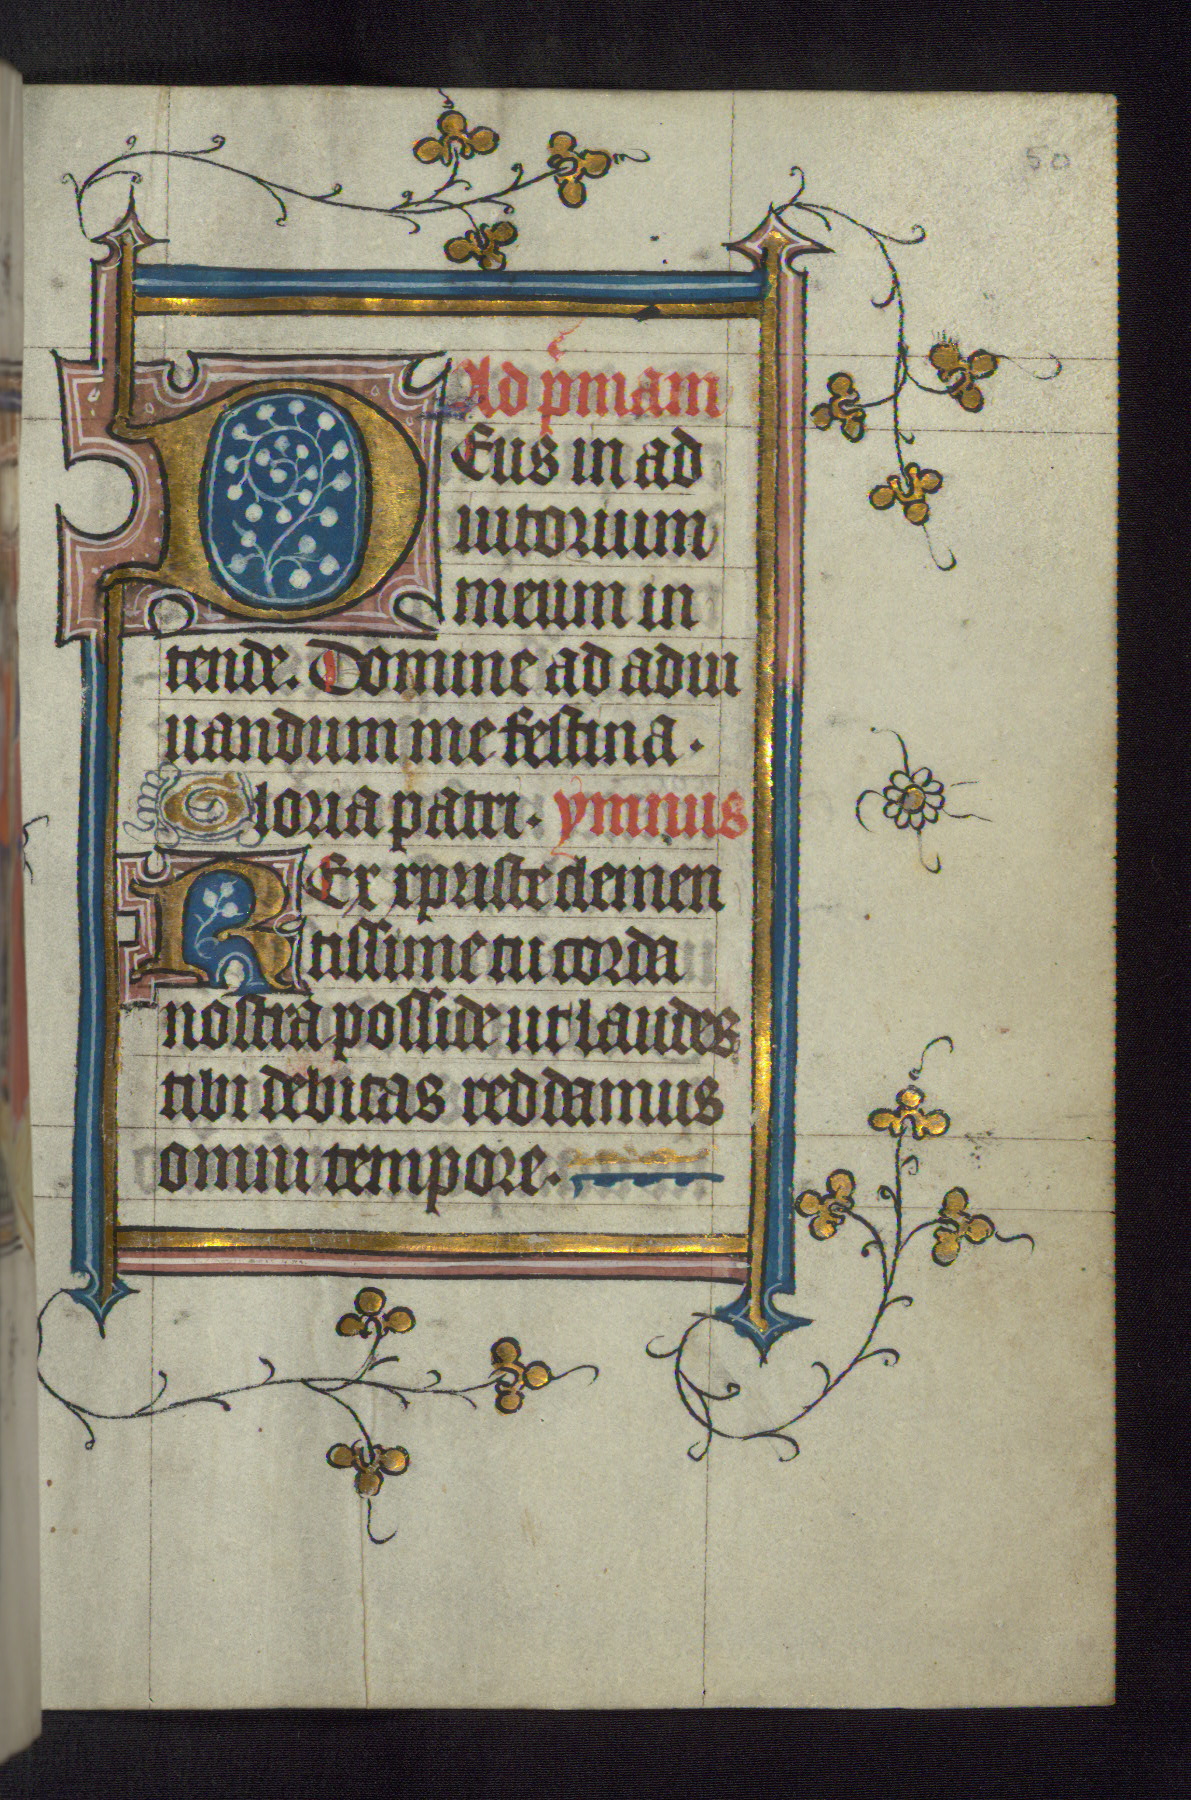 50
Ad pmam
DEus in ad
iutorium
meum in
tende. Domine ad adiu
uandum me festina.
Gloria patri. ymnus
REx xpriste clemen
tissime tu corda
nostra posside ut laudes
tibi debitas reddamus
omni tempore.